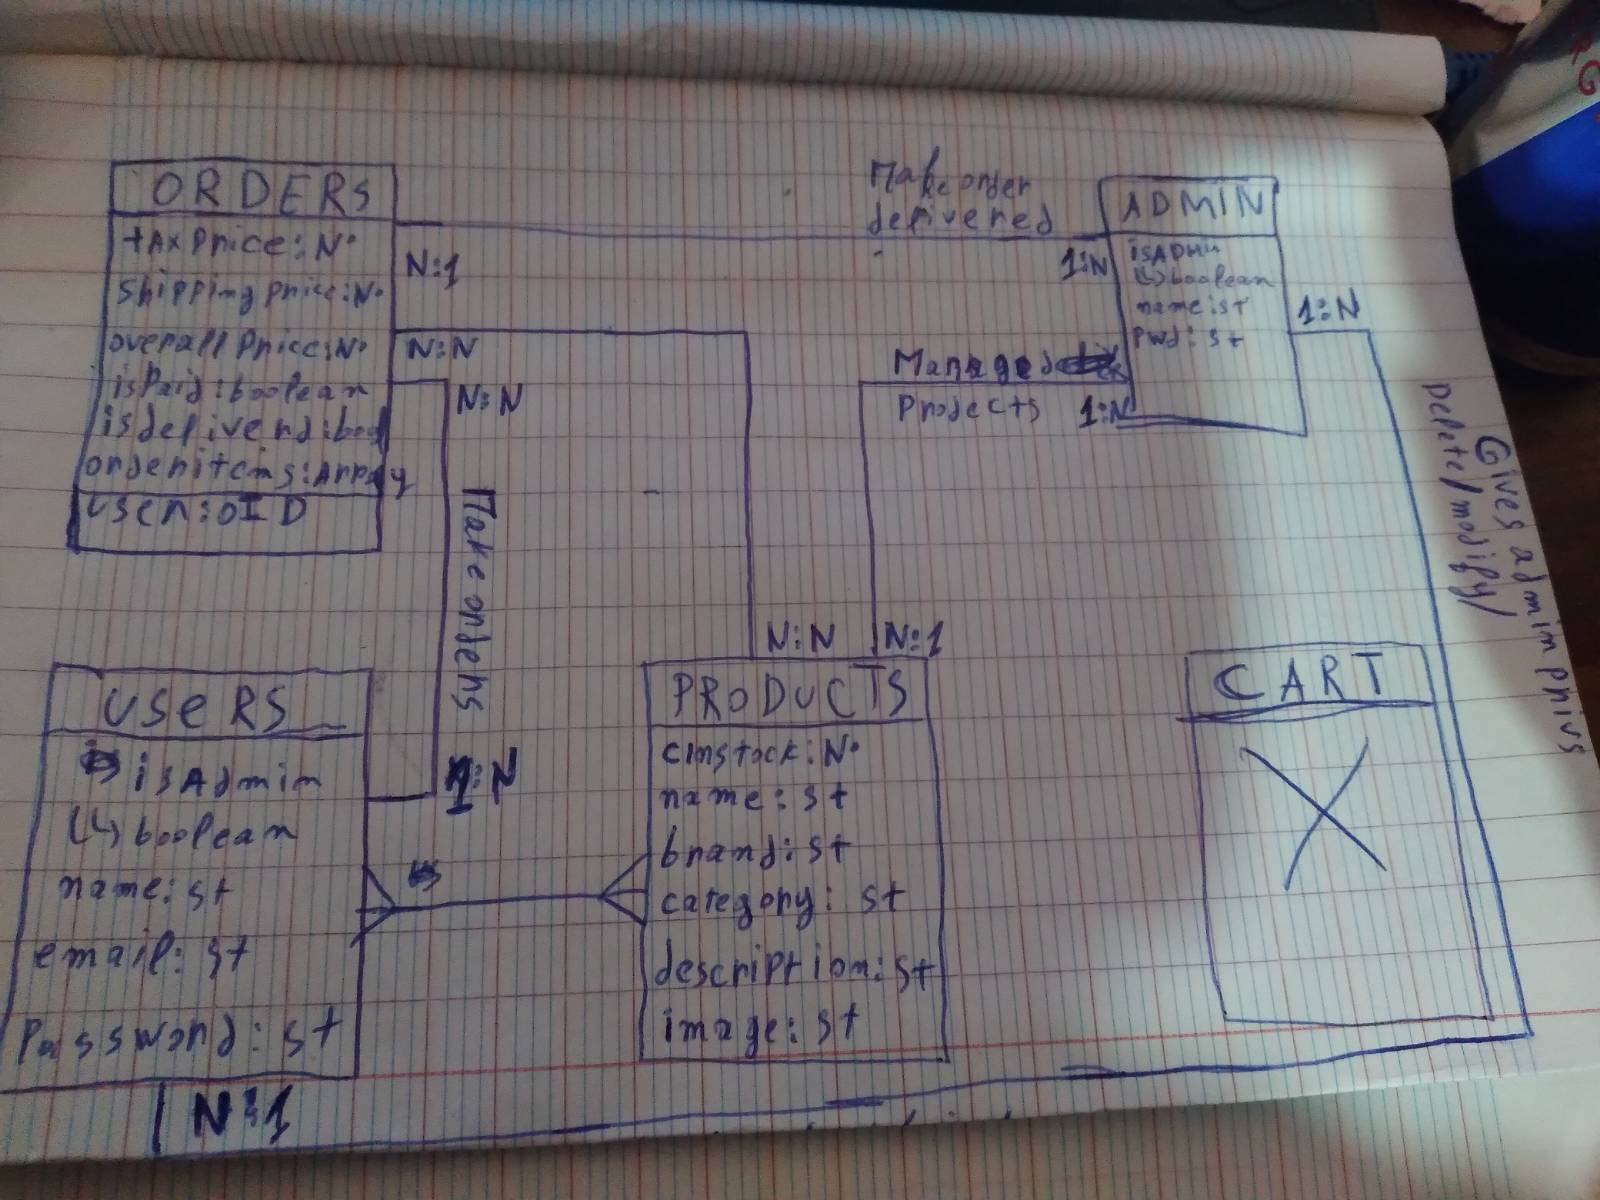 ORDERS
tAxPrice: N°
Shippingprice: N°
overallPrice: N°
isPaid: boolean
isdeliverd: bool
orderitems: Array
user: OID
N:1
N:N
N:N
Make orders
Make order
delivered
1:N
ADMIN
isADMin
(↳) boolean
name: st
Pwd: st
1:N
Manage
Products
1:N
Gives admin privs
Delete/modify/
USERS
isAdmin
(↳) boolean
name: st
email: st
Password: st
N:1
N:N
N:1
PRODUCTS
cinstock: N°
name: st
brand: st
category: st
description: st
image: st
CART